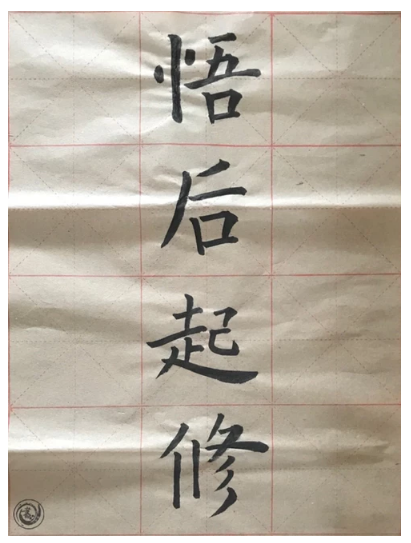 悟后起修